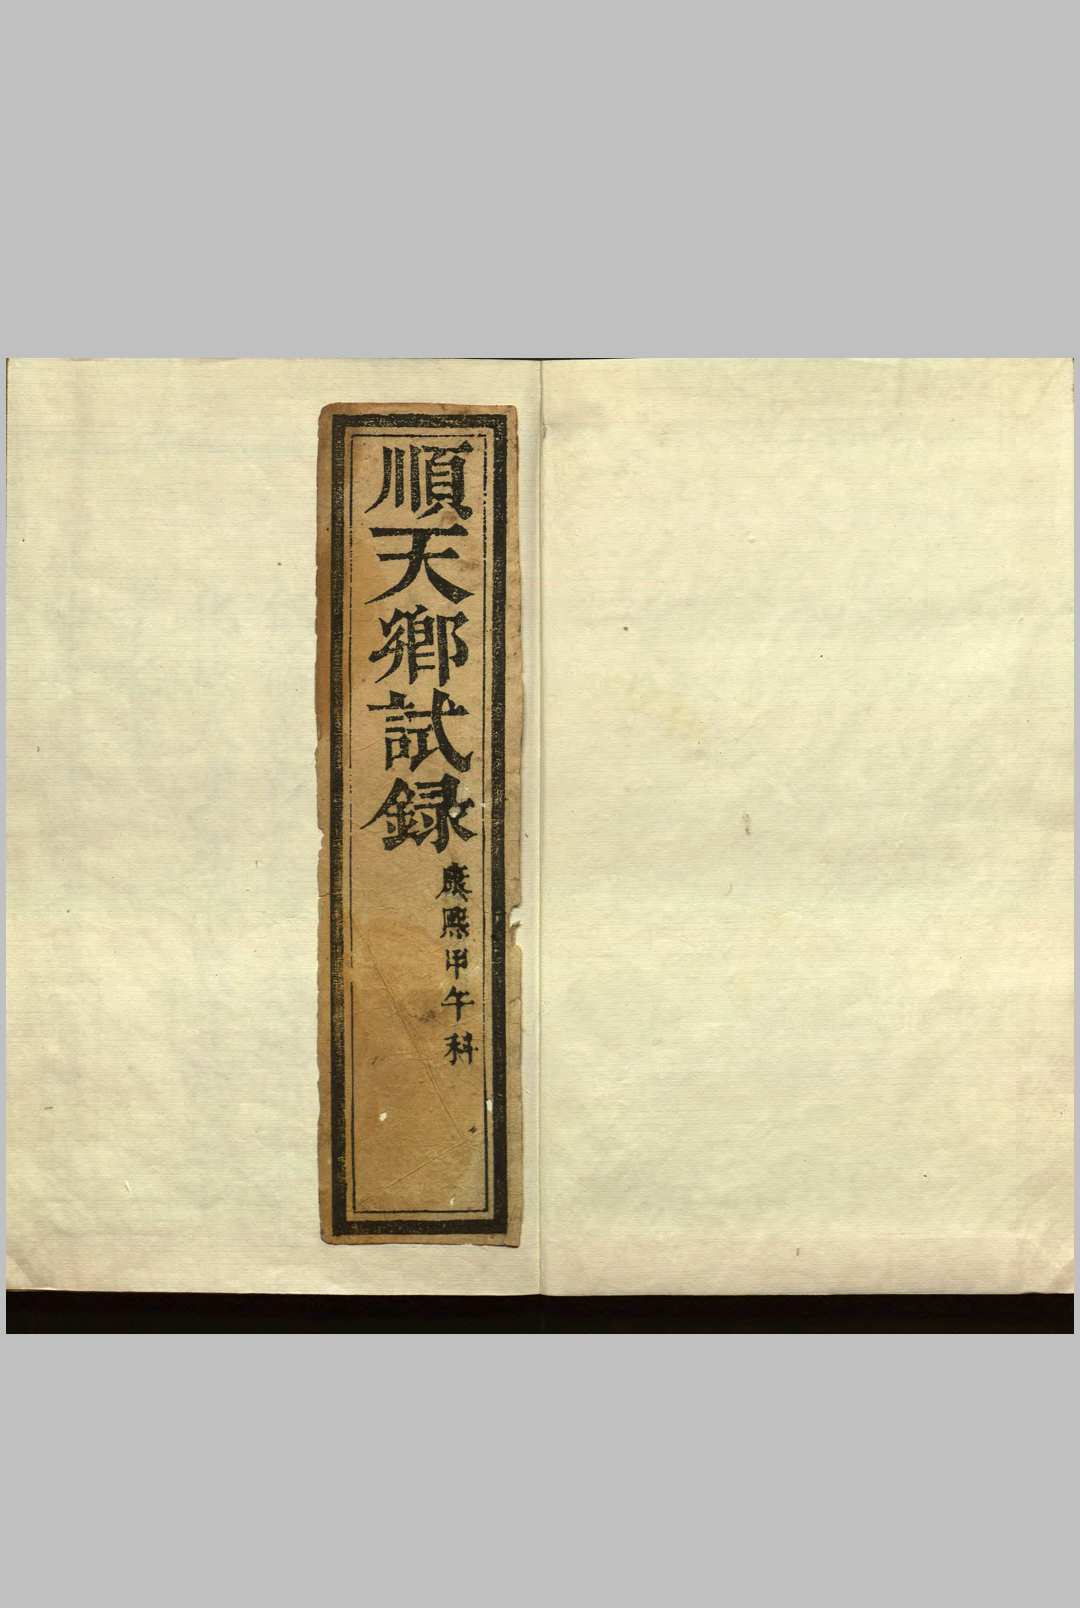 順天鄉試録
康熙甲午科